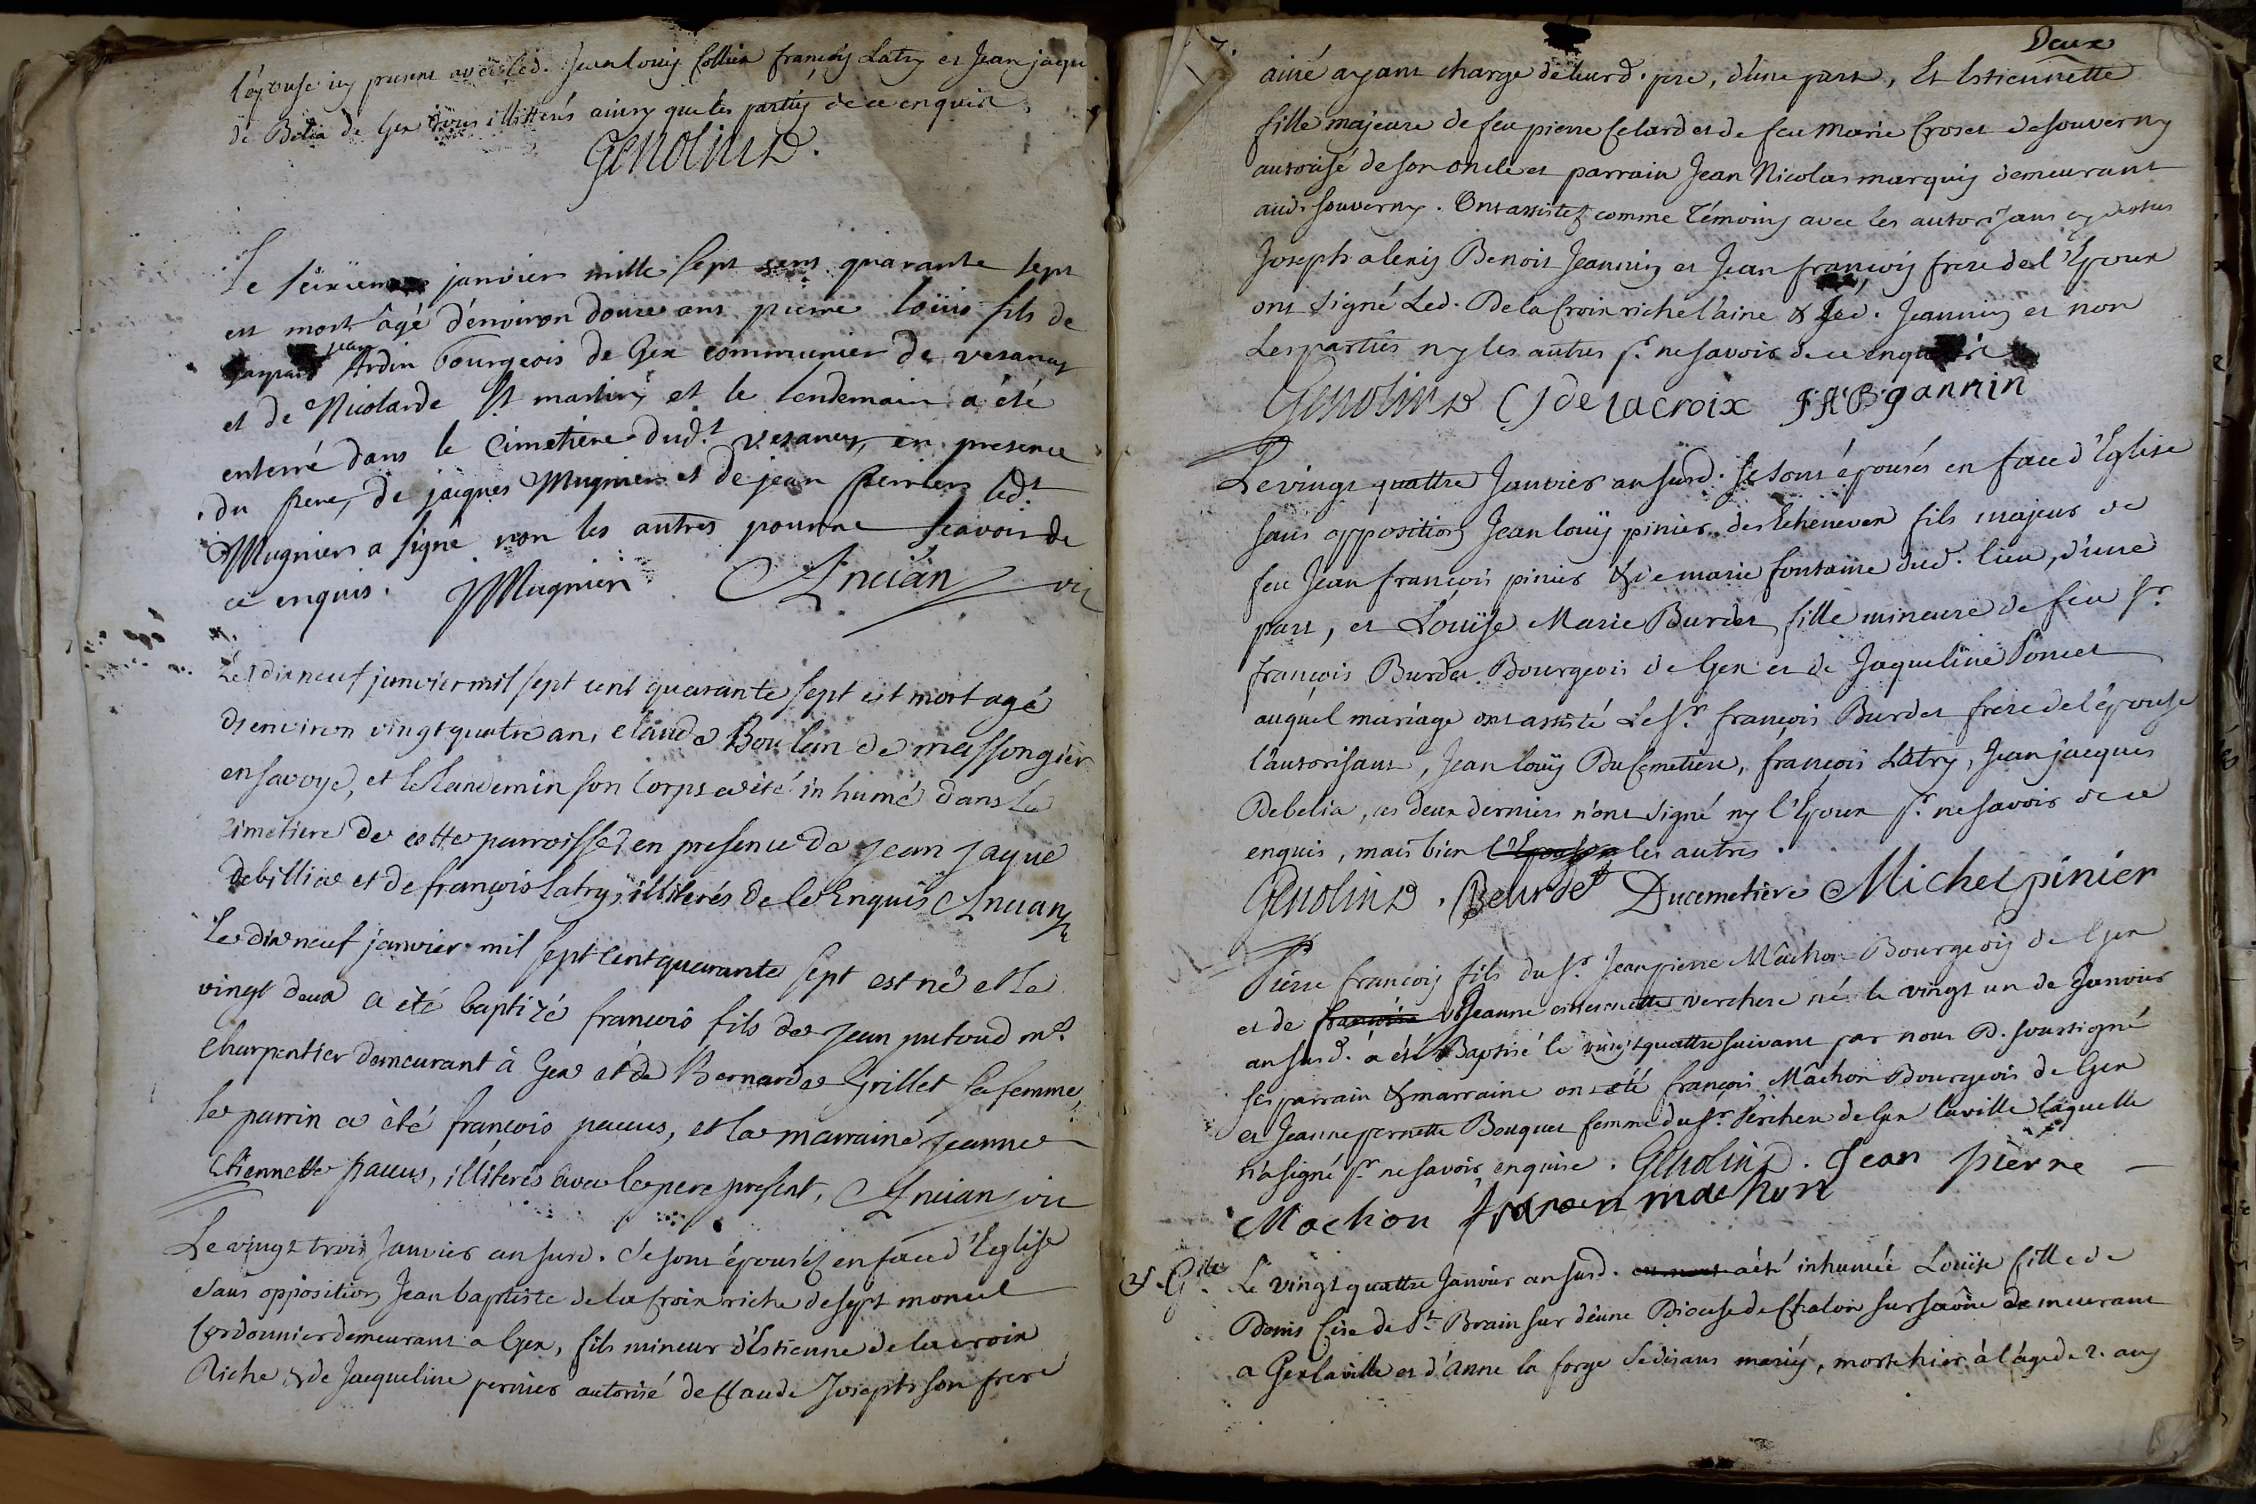 l'épouse icy present avec led. Jean louis Collier françois Latry et Jean jaque
de Belia de Gex tous illittérés ainsy que les parties de ce enquis
Genolin D.
Le seizieme janvier mille sept cens quarante sept
est mort âgé d'environ douze ans pierre loüis fils de
jean
Ardin Bourgeois de Gex communier de vesancy
et de Nicolarde St martin, et le lendemain a été
enterré dans le Cimetiere dud.t vesancy, en presence
du pere, de jacques Mugnier et de jean perrier led.t
Mugnier a signé non les autres pour ne scavoir de
ce enquis. JMugnier Ancian vic
Le dixneuf janvier mil sept cent quarante sept est mort agé
d'environ vingt quatre ans claude Boulan de massongier
en savoye, et le landemin son Corps a été inhumé dans le
Cimetiere de cette parroisse, en presence de Jean Jaque
debillia et de françois latry, illiterés de ce Enquis Ancian
Le dixneuf janvier mil sept cent quarante sept est né et le
vingt deux a été baptizé françois fils de Jean putoud m.e
Charpentier demeurant à Gex et de Bernarde Grillet sa femme,
le parrin a été françois paccus, et la marraine Jeanne
Etiennette paccus, illiterés avec le pere present, Ancian vic
Le vingt trois Janvier an susd. se sont épousés en face d'Eglise
sans opposition Jean baptiste de la Croix riche de sept moncel
Cordonnier demeurant a Gex, fils mineur d'Estienne de la croix
Riche & de Jacqueline pernier autorisé de Claude Joseph son frere
Deux
ainé ayant charge de leurd. pre, d'une part, Et Estiennette
fille majeure de feu pierre Celard et de feu Marie Croset de souverny
autorisé de son oncle et parrain Jean Nicolas marquis demeurant
aud. souverny. Ont assistez comme Témoins avec les autorisans cy dessus
Joseph alexis Benoit Jeannin et Jean françois frere de l'Epoux
ont signé Led. De la Croix riche l'aine & Led. Jeannin et non
Les parties ny les autres p.r ne savoir de ce enquis
Genolin D CJ de lacroix JABJannin
Le vingt quattre Janvier an susd. se sont épousés en face d'Eglise
sans opposition Jean louis pinier d'Echenevex fils majeur de
feu Jean françois pinier & de marie fontaine dud. lieu, d'une
part, et Loüise Marie Burdet fille mineure de feu s.r
françois Burdet Bourgeois de Gex et de Jaqueline Poncet
auquel mariage ont assisté Le s.r françois Burdet frere de l'épouse
l'autorisant, Jean louis Ducemetiere, françois Latry, Jean jacques
Debelia, les deux derniers n'ont signé ny l'Epoux p.r ne savoir de ce
enquis, mais bien les autres.
Genolin D. Beurdet Ducemetiere Michel pinier
Pierre françois fils du s.r Jean pierre Mâchon Bourgeois de Gex
et de Jeanne estiennette verchere né le vingt un de Janvier
an susd. a été Baptisé le vingt quattre suivant par nous D. soussigné
ses parrain & marraine ont été françois Mâchon Bourgeois de Gex
et Jeanne pernette Bouquet femme du s.r verchere de Gex la ville laquelle
n'a signé p.r ne savoir enquise. Genolin D. Jean pierre
Machon francois machon
Le vingt quattre Janvier an susd. a été inhumée Loüise fille de
Denis Cire de St. Brain sur deune Diocese de Chalon sur saône demeurant
a Gex la ville et d'Anne la forge se disans mariés, morte hier à l'âge de 2. ans